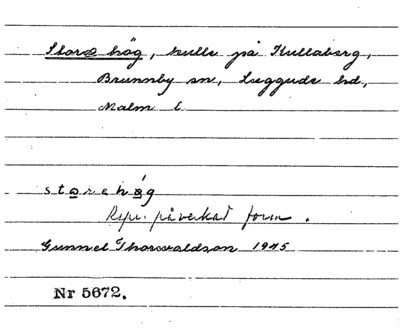 Store hög, kulle på Kullaberg,
Brunnby sn, Luggude hd,
Malm l
störehög
Rspr. påverkad form.
Gunnel Thorvaldson 1945
Nr 5672.